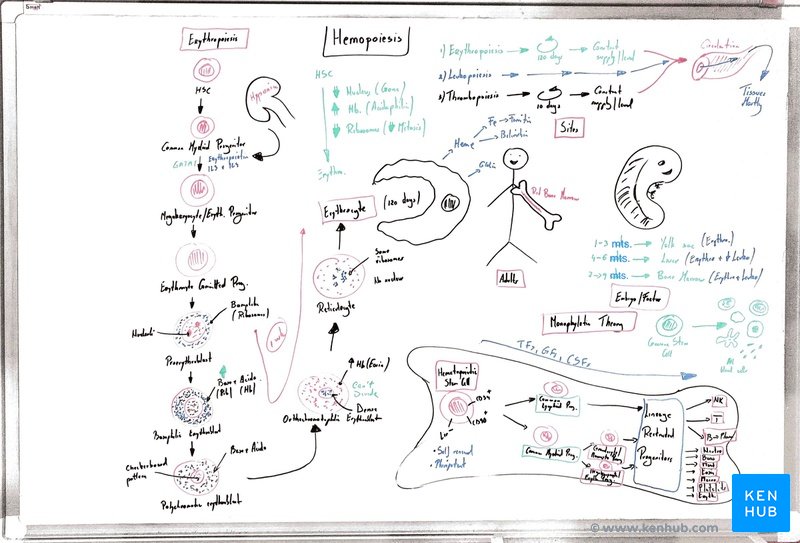 Erythropoiesis
HSC
Hypoxia
Common Myeloid Progenitor
GATA1
Erythropoietin
Megakaryocyte/Eryth. Progenitor
Erythrocyte Committed Prog.
Basophilic
(Ribosomes)
Nucleoli
Proerythroblast
1 week
Base & Acido
(Rib) (Hb)
Basophilic erythroblast
Base & Acido
Checkerboard
pattern
Polychromatic erythroblast
Hemopoiesis
HSC
Nucleus (Genes)
Hb. (Acidophilic)
Ribosomes (Mitosis)
Eryth.
Erythrocyte (120 days)
Some
ribosomes
No nucleus
Reticulocyte
Hb (Eosin)
Can't
Divide
Dense
Orthochromatophilic Erythroblast
Heme
Fe → Ferritin
Bilirubin
Globin
1) Erythropoiesis → 120 days → Constant supply/level
2) Leukopoiesis
3) Thrombopoiesis → 10 days → Constant supply/level
Circulation
Tissues
Mostly
Sites
Red Bone Marrow
Adults
1-3 mts. → Yolk sac (Erythro.)
4-6 mts. → Liver (Erythro + Leuko)
7→9 mts. → Bone Marrow (Erythro + Leuko)
Embryo/Foetus
Monophyletic Theory
Common Stem
Cell
All
blood cells
TFs, GFs, CSFs
Hematopoietic
Stem Cell
CD34+
CD90+
Lin-
• Self renewal
• Pluripotent
Common Lymphoid Prog.
Common Myeloid Prog.
Granulocyte/
Monocyte Prog.
Megakaryocyte/
Eryth Prog.
Lineage
Restricted
Progenitors
NK
T
B → Plasma
Neutro
Baso
Mast
Eosin
Mono
Platelets
Eryth
KEN
HUB
© www.kenhub.com